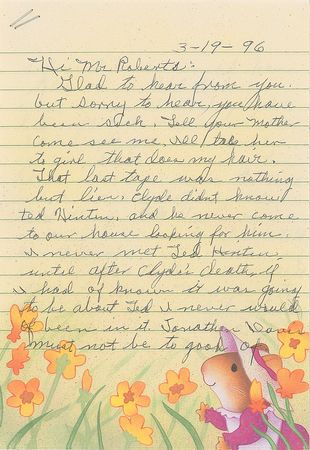 3-19-96
Hi Mr Roberts:
Glad to hear from you.
but sorry to hear, you have
been sick. Tell your Mother
come see me, I'll take her
to girl that does my hair.
That last tape was nothing
but lies. Clyde didnt know
Ted Hinton, and he never come
to our house looking for him.
I never met Ted Hinton
until after Clyde's death, if
I had of known it was going
to be about Ted I never would
of been in it. Jonathan
must not be to good of